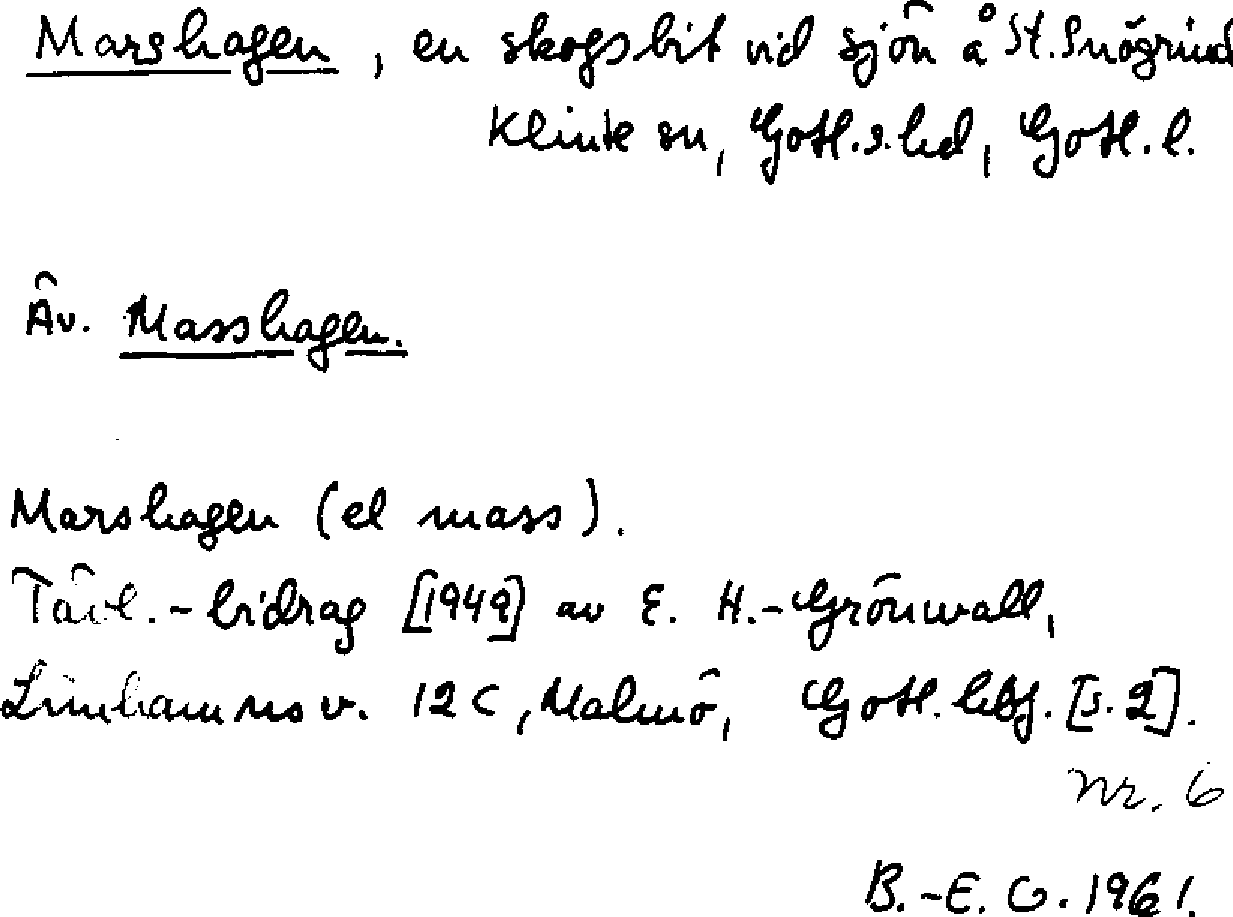 Marshagen, en skogsbit vid sjön å St. Snögrind
Klinte sn, Gotl. s. hd, Gotl. l.
Äv. Masshagen.
Marshagen (el mass).
Tävl.-bidrag [1949] av E. H.-Grönwall,
Limhamnsv. 12 C, Malmö, Gotl. hbf. [s. 2].
nr. 6
B.-E. G. 1961.